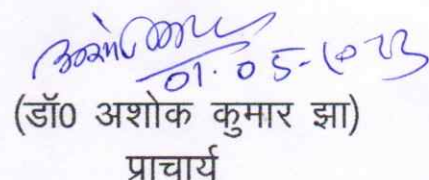 01.05.2023
(डॉ0 अशोक कुमार झा)
प्राचार्य